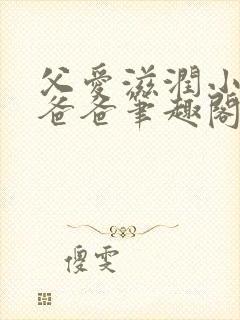 父愛滋潤小
爸爸筆趣閣
傻雯